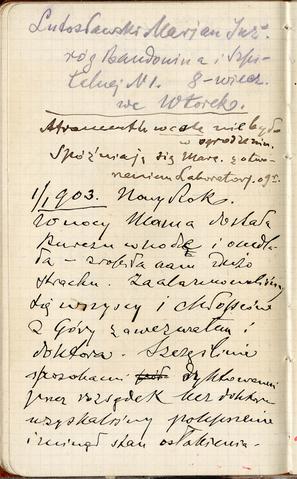 Lutosławski Marjan Inż.
róg Baudouina i Szpi-
talnej N 1. 8-wiecz.
we Wtorek.
Atramentu wcale nie było
w ogrodzeniu.
Spóźniają się Mare. z otwo-
rzeniem Laboratorj. o g.
1/I 903. Nowy Rok.
W nocy Mama dostała
kurczu w nodze i omdla-
ła – zrobiła nam dużo
strachu. Zaalarmowaliśmy
się wszyscy i chłopców
z Góry zawezwałem i
doktora. Szczęśliwie
sposobami dyktowanemi
przez rozsądek bez doktora
uzyskaliśmy polepszenie
i minął stan osłabienia.